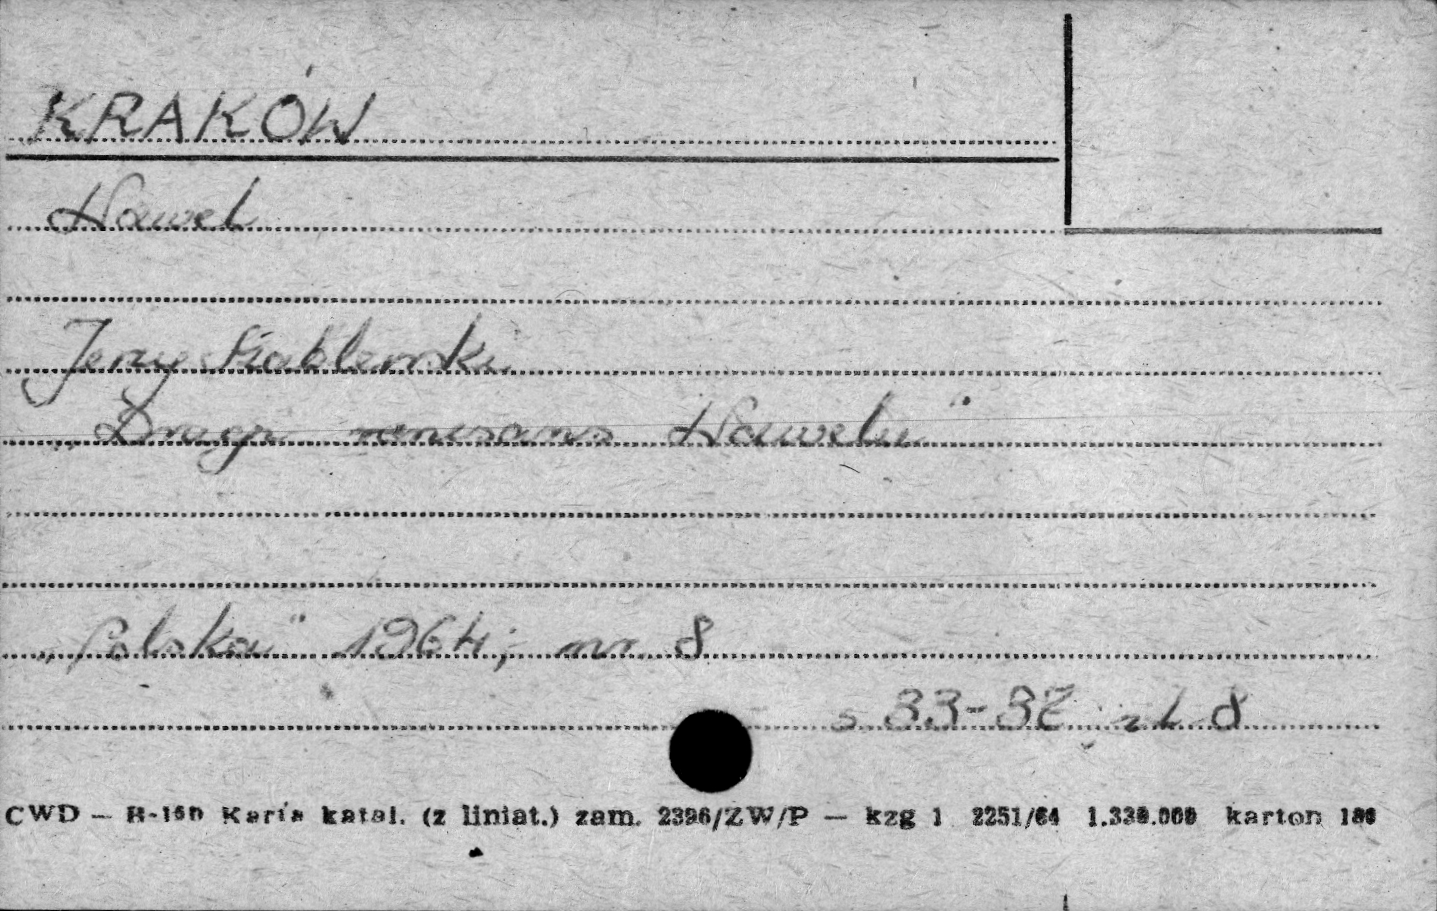 KRAKÓW
Wawel
Jerzy Szablewski
„Drugi renesans Wawelu"
„Polska" 1964; nr 8
s 33-37 il 8
CWD — B-160 Karta katal. (z liniat.) zam. 2396/ZW/P — kzg 1 2251/64 1.330.000 karton 180